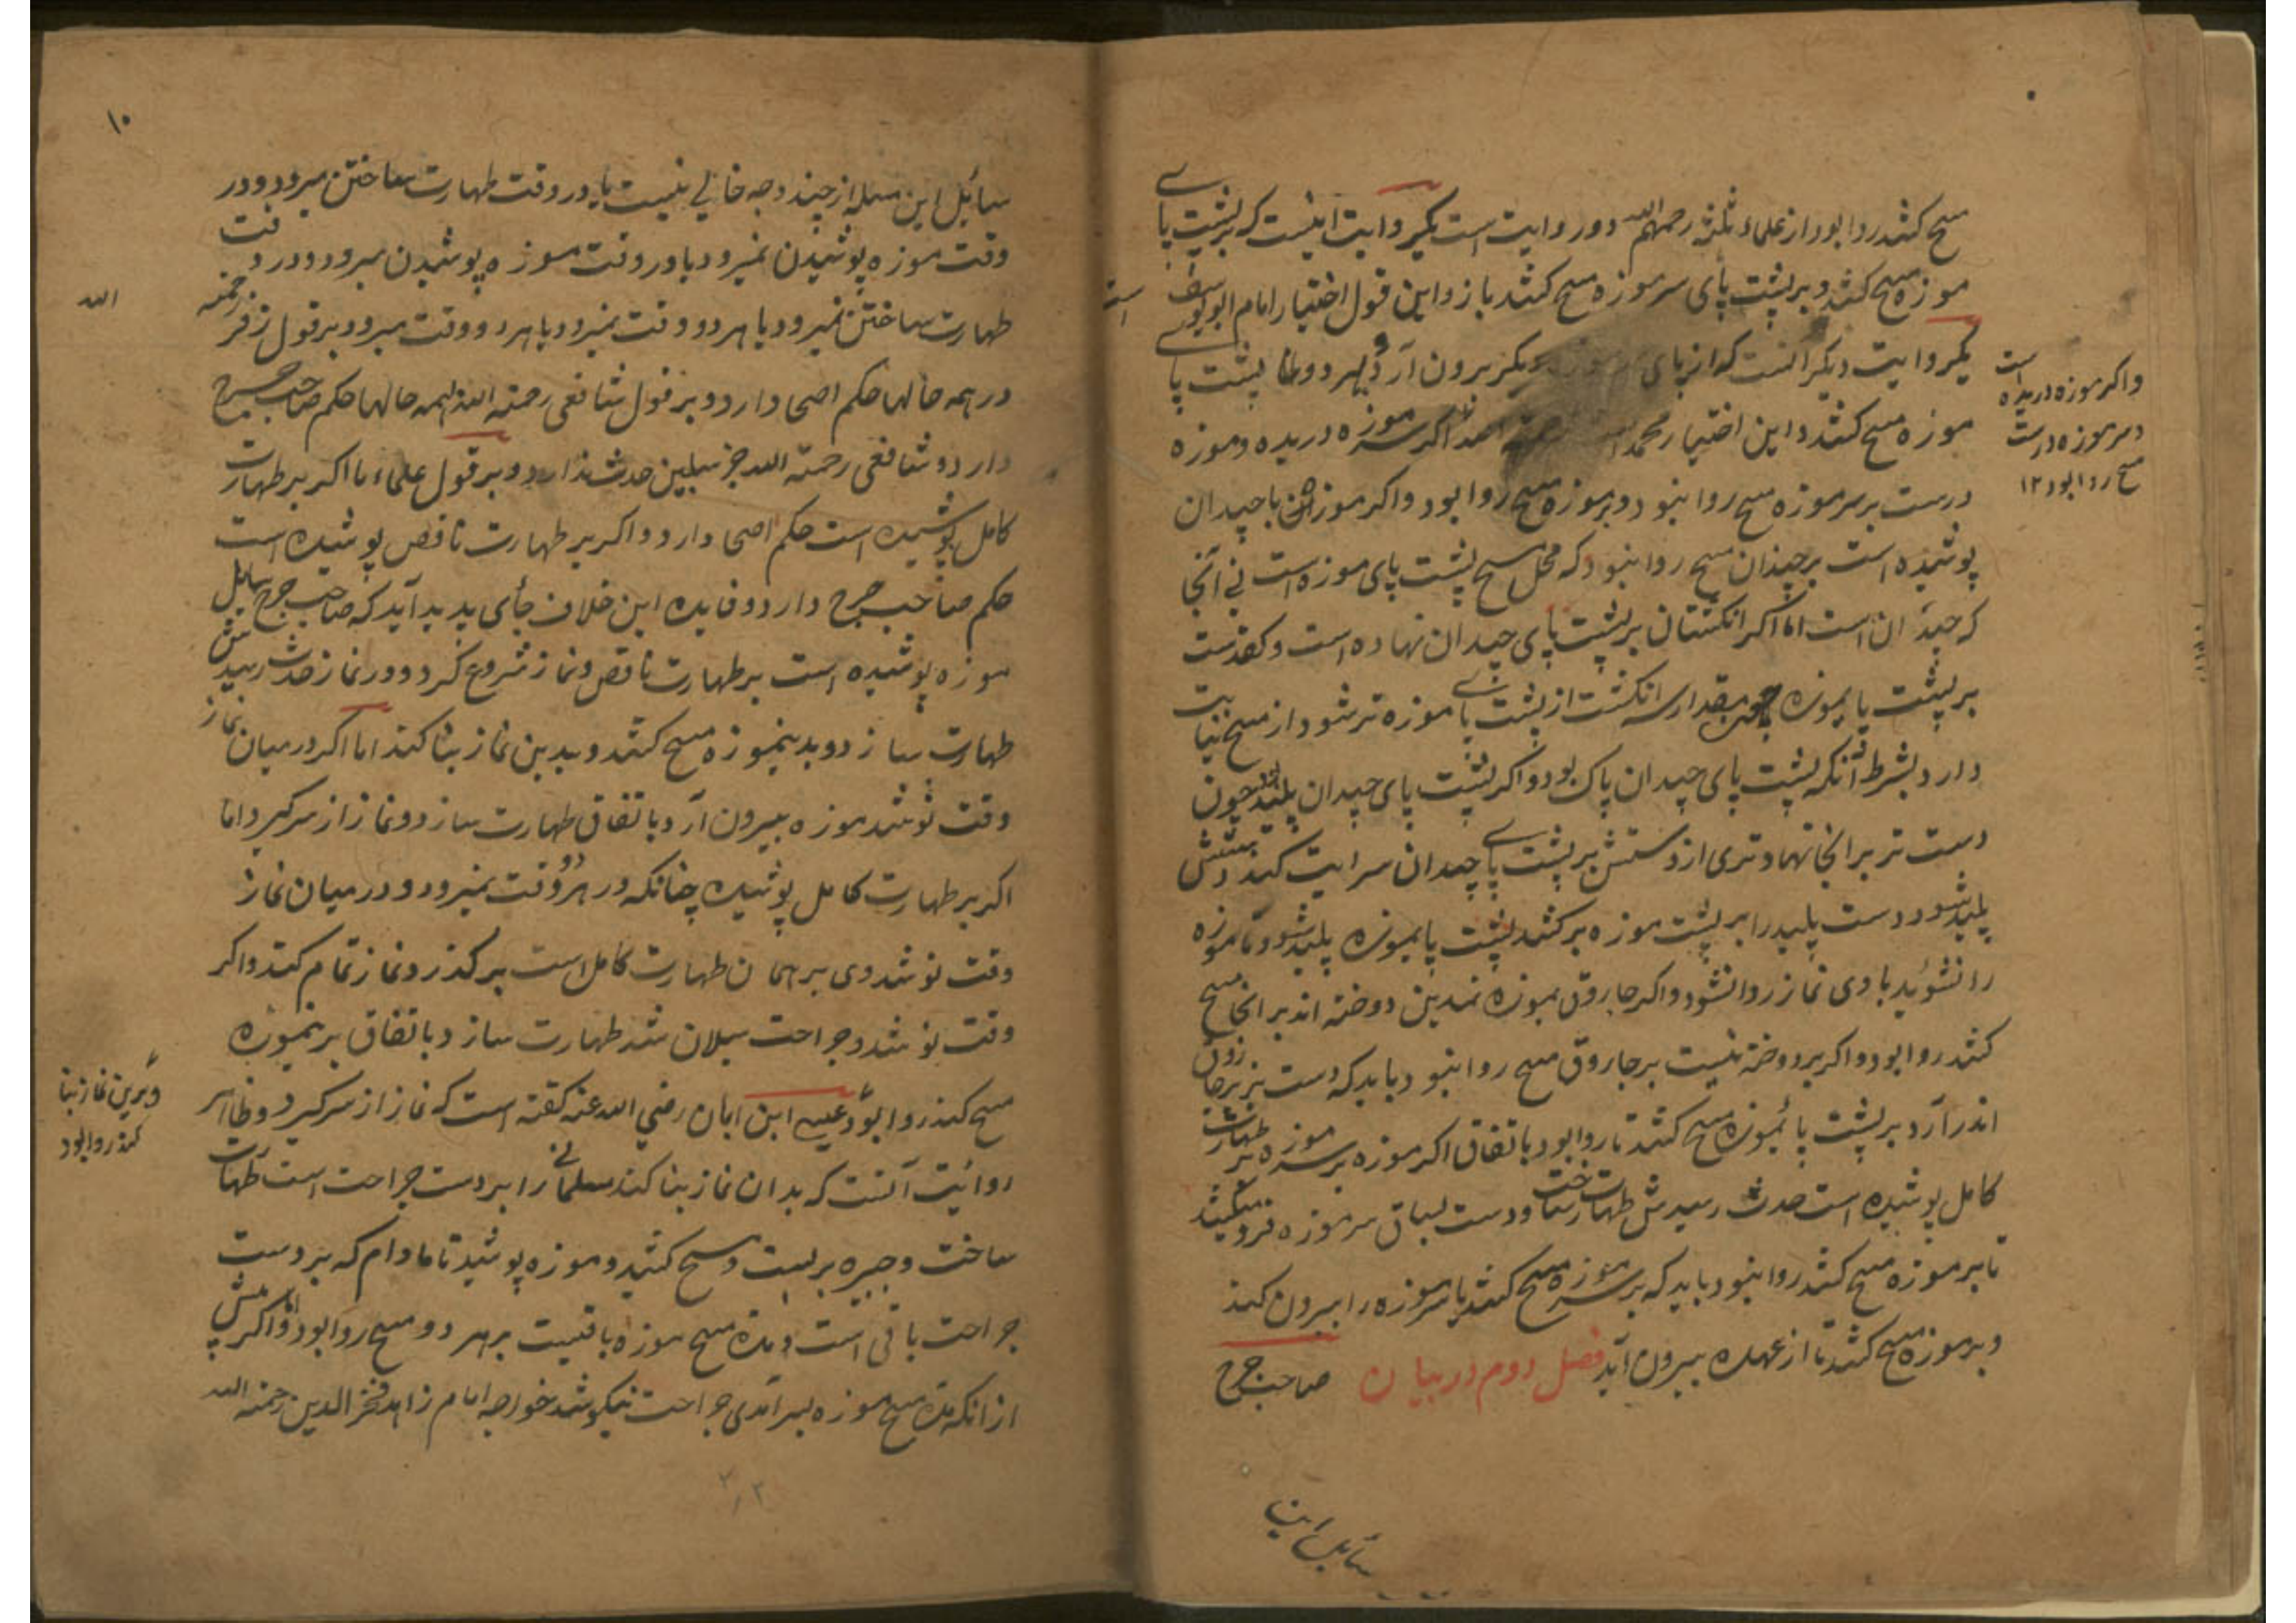 مسح کشد روا بود از علماء ثلثه رحمهم الله دو روایت است یکروایت اینست که بر پشت پای
موزه مسح کشد و بر پشت پای سر موزه مسح کشد باز و این قول اختیار امام ابو یوسف
است
یکروایت دیگر آنست که از پای بیرون آرد و بهر دو پشت پا
موزه مسح کشد و این اختیار محمد است اگر سر موزه دریده و موزه
درست بر سر موزه مسح روا نبود و بر موزه مسح روا بود و اگر موزه با چیدان
پوشیده است بر چیدان مسح روا نبود که محل مسح پشت پای موزه است نی آنجا
که چیدان است اما اگر انگشتان بر پشت پای چیدان نهاده است و کفدست
بر پشت پایموزه مقدار سه انگشت از پشت پای موزه تر شود از مسح نیابت
دارد بشرط آنکه پشت پای چیدان پاک بود و اگر پشت پای چیدان پلید بود چون
دست تر بر آنجا نهاد و تری از دستش بر پشت پای چیدان سرایت کند دستش
پلید شود و دست پلید را بر پشت موزه بر کشد پشت پایموزه پلید شود تا موزه
را نشوید با وی نماز روا نشود و اگر جاروق بموزه نمدین دوخته اند بر آنجا مسح
کشد روا بود و اگر بر دوخته نیست بر جاروق مسح روا نبود و باید که دست بزیر جاروق
اندر آرد بر پشت پائموزه مسح کشد تا روا بود باتفاق اگر موزه بر سر موزه بر طهارت
کامل پوشیده است حدث رسیدش طهارت ساخت و دست بساق سر موزه فرو میکشد
تا بر موزه مسح کشد روا نبود باید که بر سر موزه مسح کشد یا سر موزه را بیرون کند
و بر موزه مسح کشد تا از عهده بیرون آید فصل دوم در بیان صاحب جرح
سایل این
و اگر موزه دریده است
و سر موزه درست
مسح روا بود ۱۲
۱۰
سایل این مسله از چند وجه خالی نیست یا در وقت طهارت ساختن میرود و در
وقت موزه پوشیدن نمیرود یا در وقت موزه پوشیدن میرود و در وقت
طهارت ساختن نمیرود یا بهر دو وقت نمیرود یا بهر دو وقت میرود بر قول زفر رحمته
الله
در همه حالها حکم اصحا دارد و بر قول شافعی رحمته الله بهمه حالها حکم صاحب جرح
دارد و شافعی رحمته الله جز سبیلین حدث ندارد و بر قول علماء ما اگر بر طهارت
کامل پوشیده است حکم اصحا دارد و اگر بر طهارت ناقص پوشیده است
حکم صاحب جرح دارد و فایده این خلاف جای پدید آید که صاحب جرح سایل
موزه پوشیده است بر طهارت ناقص و نماز شروع کرد و در نماز حدث رسیدش
طهارت سازد و بدینموزه مسح کشد و بدین نماز بنا کند اما اگر در میان نماز
وقت نو شد موزه بیرون آرد باتفاق طهارت سازد و نماز از سر گیرد اما
اگر بر طهارت کامل پوشیده چنانکه در هر دو وقت نمیرود و در میان نماز
وقت نو شد وی بر همان طهارت کامل است بر گذرد نماز تمام کند و اگر
وقت نو شد و جراحت سیلان شد طهارت سازد باتفاق برینموزه
مسح کند روا بود عیسی ابن ابان رضی الله عنه گفته است که نماز از سر گیرد و ظاهر
روایت آنست که بدان نماز بنا کند مسلمانی را بر دست جراحت است طهارت
ساخت و جبیره بر بست و مسح کشید و موزه پوشید تا مادام که بر دست
جراحت باقی است و مده مسح موزه باقیست بر هر دو مسح روا بود و اگر پیش
از آنکه مده مسح موزه بسر آمدی جراحت نیکو شد خواجه امام زاهد فخر الدین رحمته الله
و برین نماز بنا
کند روا بود